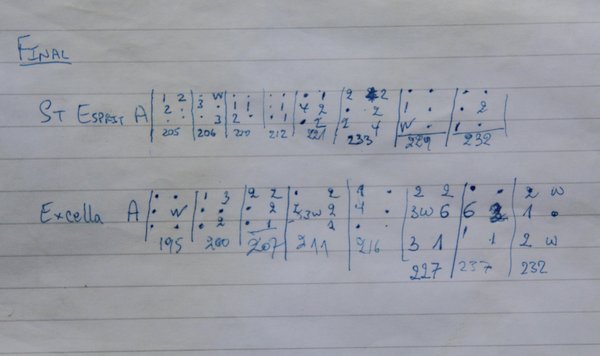 FINAL
1 2 | · W | · · | · · | · 1 | 2 2 | · · | · ·
ST ESPRIT A | 2 · | 3 · | 1 1 | · 1 | 4 2 | · 2 | 1 · | · 2
· · | · 3 | 2 · | · 1 | · 2 | 2 4 | W · | 1 ·
205 | 206 | 210 | 212 | 221 | 233 | 229 | 232
· · | 1 3 | 2 2 | · 2 | 1 · | 2 2 | · · | 2 W
Excella A | · W | · · | · 2 | 3W 2 | 4 · | 3W 6 | 6 | 1 ·
· · | · 2 | · 1 | 1 | · · | 3 1 | 1 1 | 2 W
195 | 200 | 207 | 211 | 216 | 227 | 237 | 232